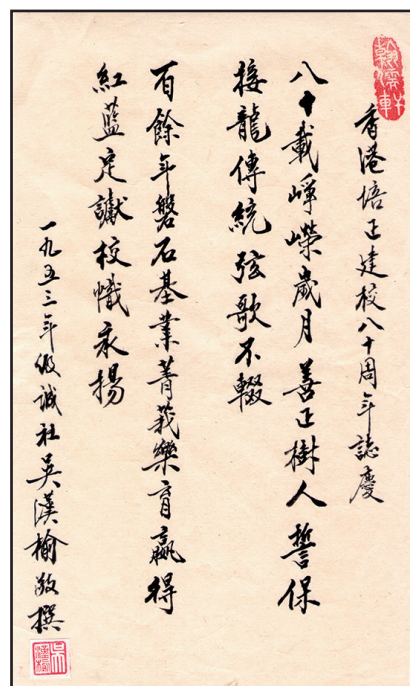 香港培正建校八十周年誌慶
八十載崢嶸歲月善正樹人誓保
接龍傳統弦歌不輟
百餘年磐石基業菁莪樂育贏得
紅藍定讞校幟永揚
一九五三年級誠社吳漢榆敬撰